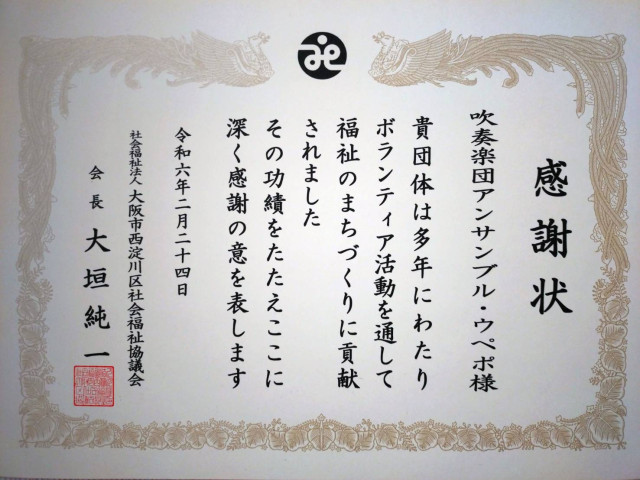 感謝状
吹奏楽団アンサンブル・ウペポ様
貴団体は多年にわたり
ボランティア活動を通して
福祉のまちづくりに貢献
されました
その功績をたたえここに
深く感謝の意を表します
令和六年二月二十四日
社会福祉法人 大阪市西淀川区社会福祉協議会
会長 大垣純一